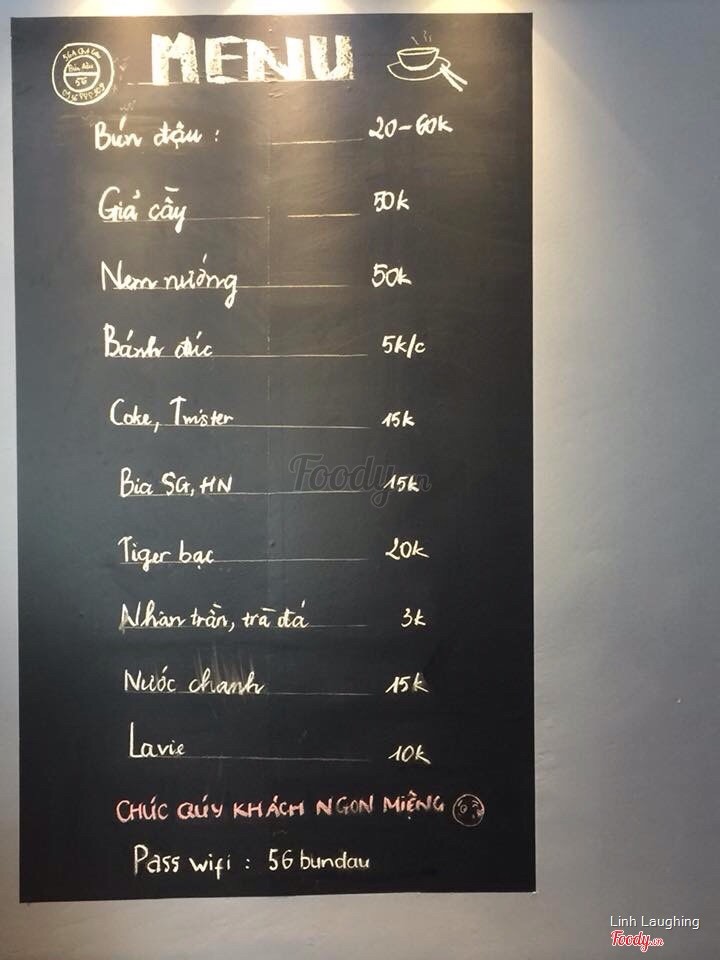 MENU
Bún đậu
56
Bún đậu : 20-60k
Giả cầy 50k
Nem nướng 50k
Bánh đúc 5k/c
Coke, Twister 15k
Bia SG, HN 15k
Tiger bạc 20k
Nhân trần, trà đá 3k
Nước chanh 15k
Lavie 10k
CHÚC QÚY KHÁCH NGON MIỆNG
Pass wifi : 56 bundau
Foody.vn
Linh Laughing
Foody.vn